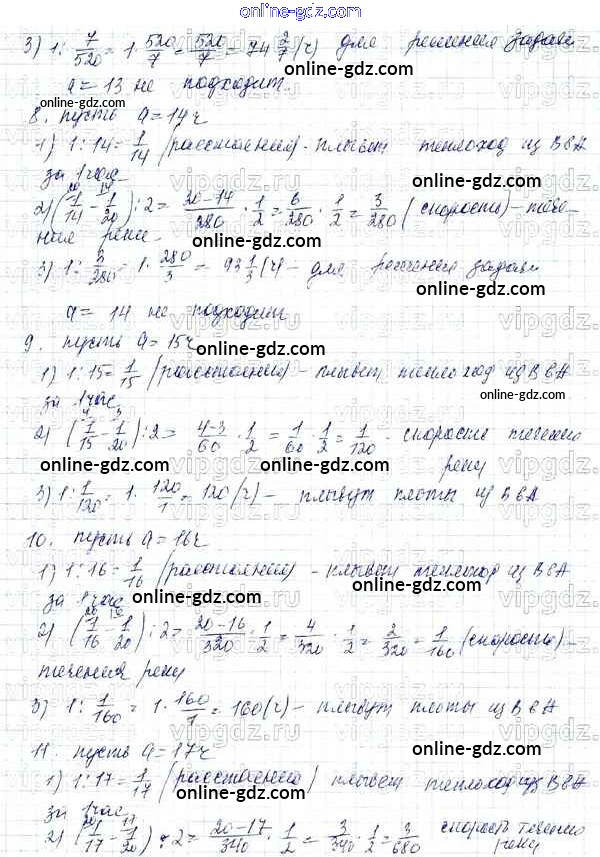 online-gdz.com
3) 1 : 7/520 = 1 · 520/7 = 520/7 = 74 2/7 (ч) для решения задачи
а = 13 не подходит.
online-gdz.com
8. пусть а = 14 ч
online-gdz.com
1) 1 : 14 = 1/14 (расстояния) - плывет теплоход из В в А
за 1 час
online-gdz.com
2) (1/14 - 1/20) : 2 = 20-14/280 · 1/2 = 6/280 · 1/2 = 3/280 (скорость) - тече-
ния реки -
online-gdz.com
3) 1 : 3/280 = 1 · 280/3 = 93 1/3 (ч) - для решения задачи
online-gdz.com
а = 14 не подходит
9. пусть а = 15 ч
online-gdz.com
1) 1 : 15 = 1/15 (расстояния) - плывет теплоход из В в А
за 1 час
online-gdz.com
2) (1/15 - 1/20) : 2 = 4-3/60 · 1/2 = 1/60 · 1/2 = 1/120 - скорость течения
online-gdz.com online-gdz.com реки
3) 1 : 1/120 = 1 · 120/1 = 120 (ч) - плывут плоты из В в А
online-gdz.com
10. пусть а = 16 ч
online-gdz.com
1) 1 : 16 = 1/16 (расстояния) - плывет теплоход из В в А
за 1 час
online-gdz.com
2) (1/16 - 1/20) : 2 = 20-16/320 · 1/2 = 4/320 · 1/2 = 2/320 = 1/160 (скорость) -
течения реки
online-gdz.com
3) 1 : 1/160 = 1 · 160/1 = 160 (ч) - плывут плоты из В в А
online-gdz.com
11. пусть а = 17 ч
online-gdz.com
1) 1 : 17 = 1/17 (расстояния) плывет теплоход из В в А
за 1 час
online-gdz.com
2) (1/17 - 1/20) : 2 = 20-17/340 · 1/2 = 3/340 · 1/2 = 3/680 скорость течения
online-gdz.com реки